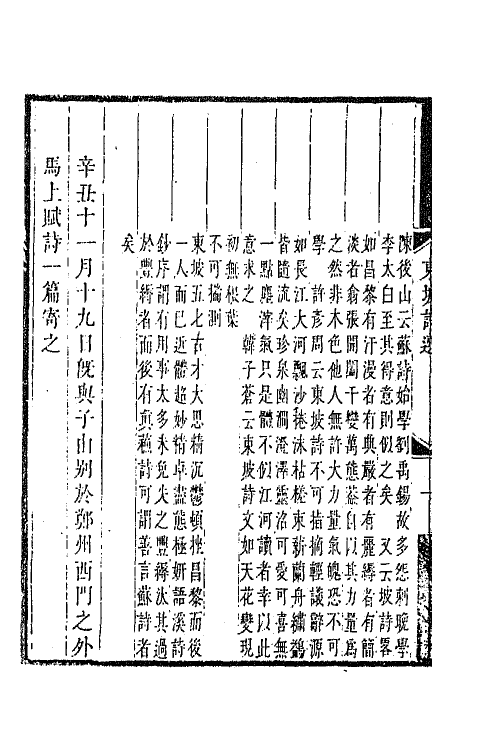 陳後山云蘇詩始學劉禹錫故多怨刺晚學
李太白至其得意則似之矣　又云坡詩畧
如昌黎有汗漫者有典嚴者有麗縟者有簡
淡者翕張開闔千變萬態蓋自以其力量為
之然非木色他人無許大力量氣魄恐不可
學　許彥周云東坡詩不可指摘輕議辭源
如長江大河飄沙捲沫枯槎束薪蘭舟繡鷁
皆隨流矣珍泉幽澗澄澤靈沼可愛可喜無
一點塵滓氣只是體不似江河讀者幸以此
意求之　韓子蒼云東坡詩文如天花變現
初無根葉
不可揣測
東坡五七古才大思精沉鬱頓挫昌黎而後
一人而已近體超妙精卓盡態極妍語溪詩
鈔序謂有用事太多未免失之豐縟汰其過
於豐縟者而後有真穪詩可謂善言蘇詩者
矣
辛丑十一月十九日既與子由別於鄭州西門之外
馬上賦詩一篇寄之
東坡詩選